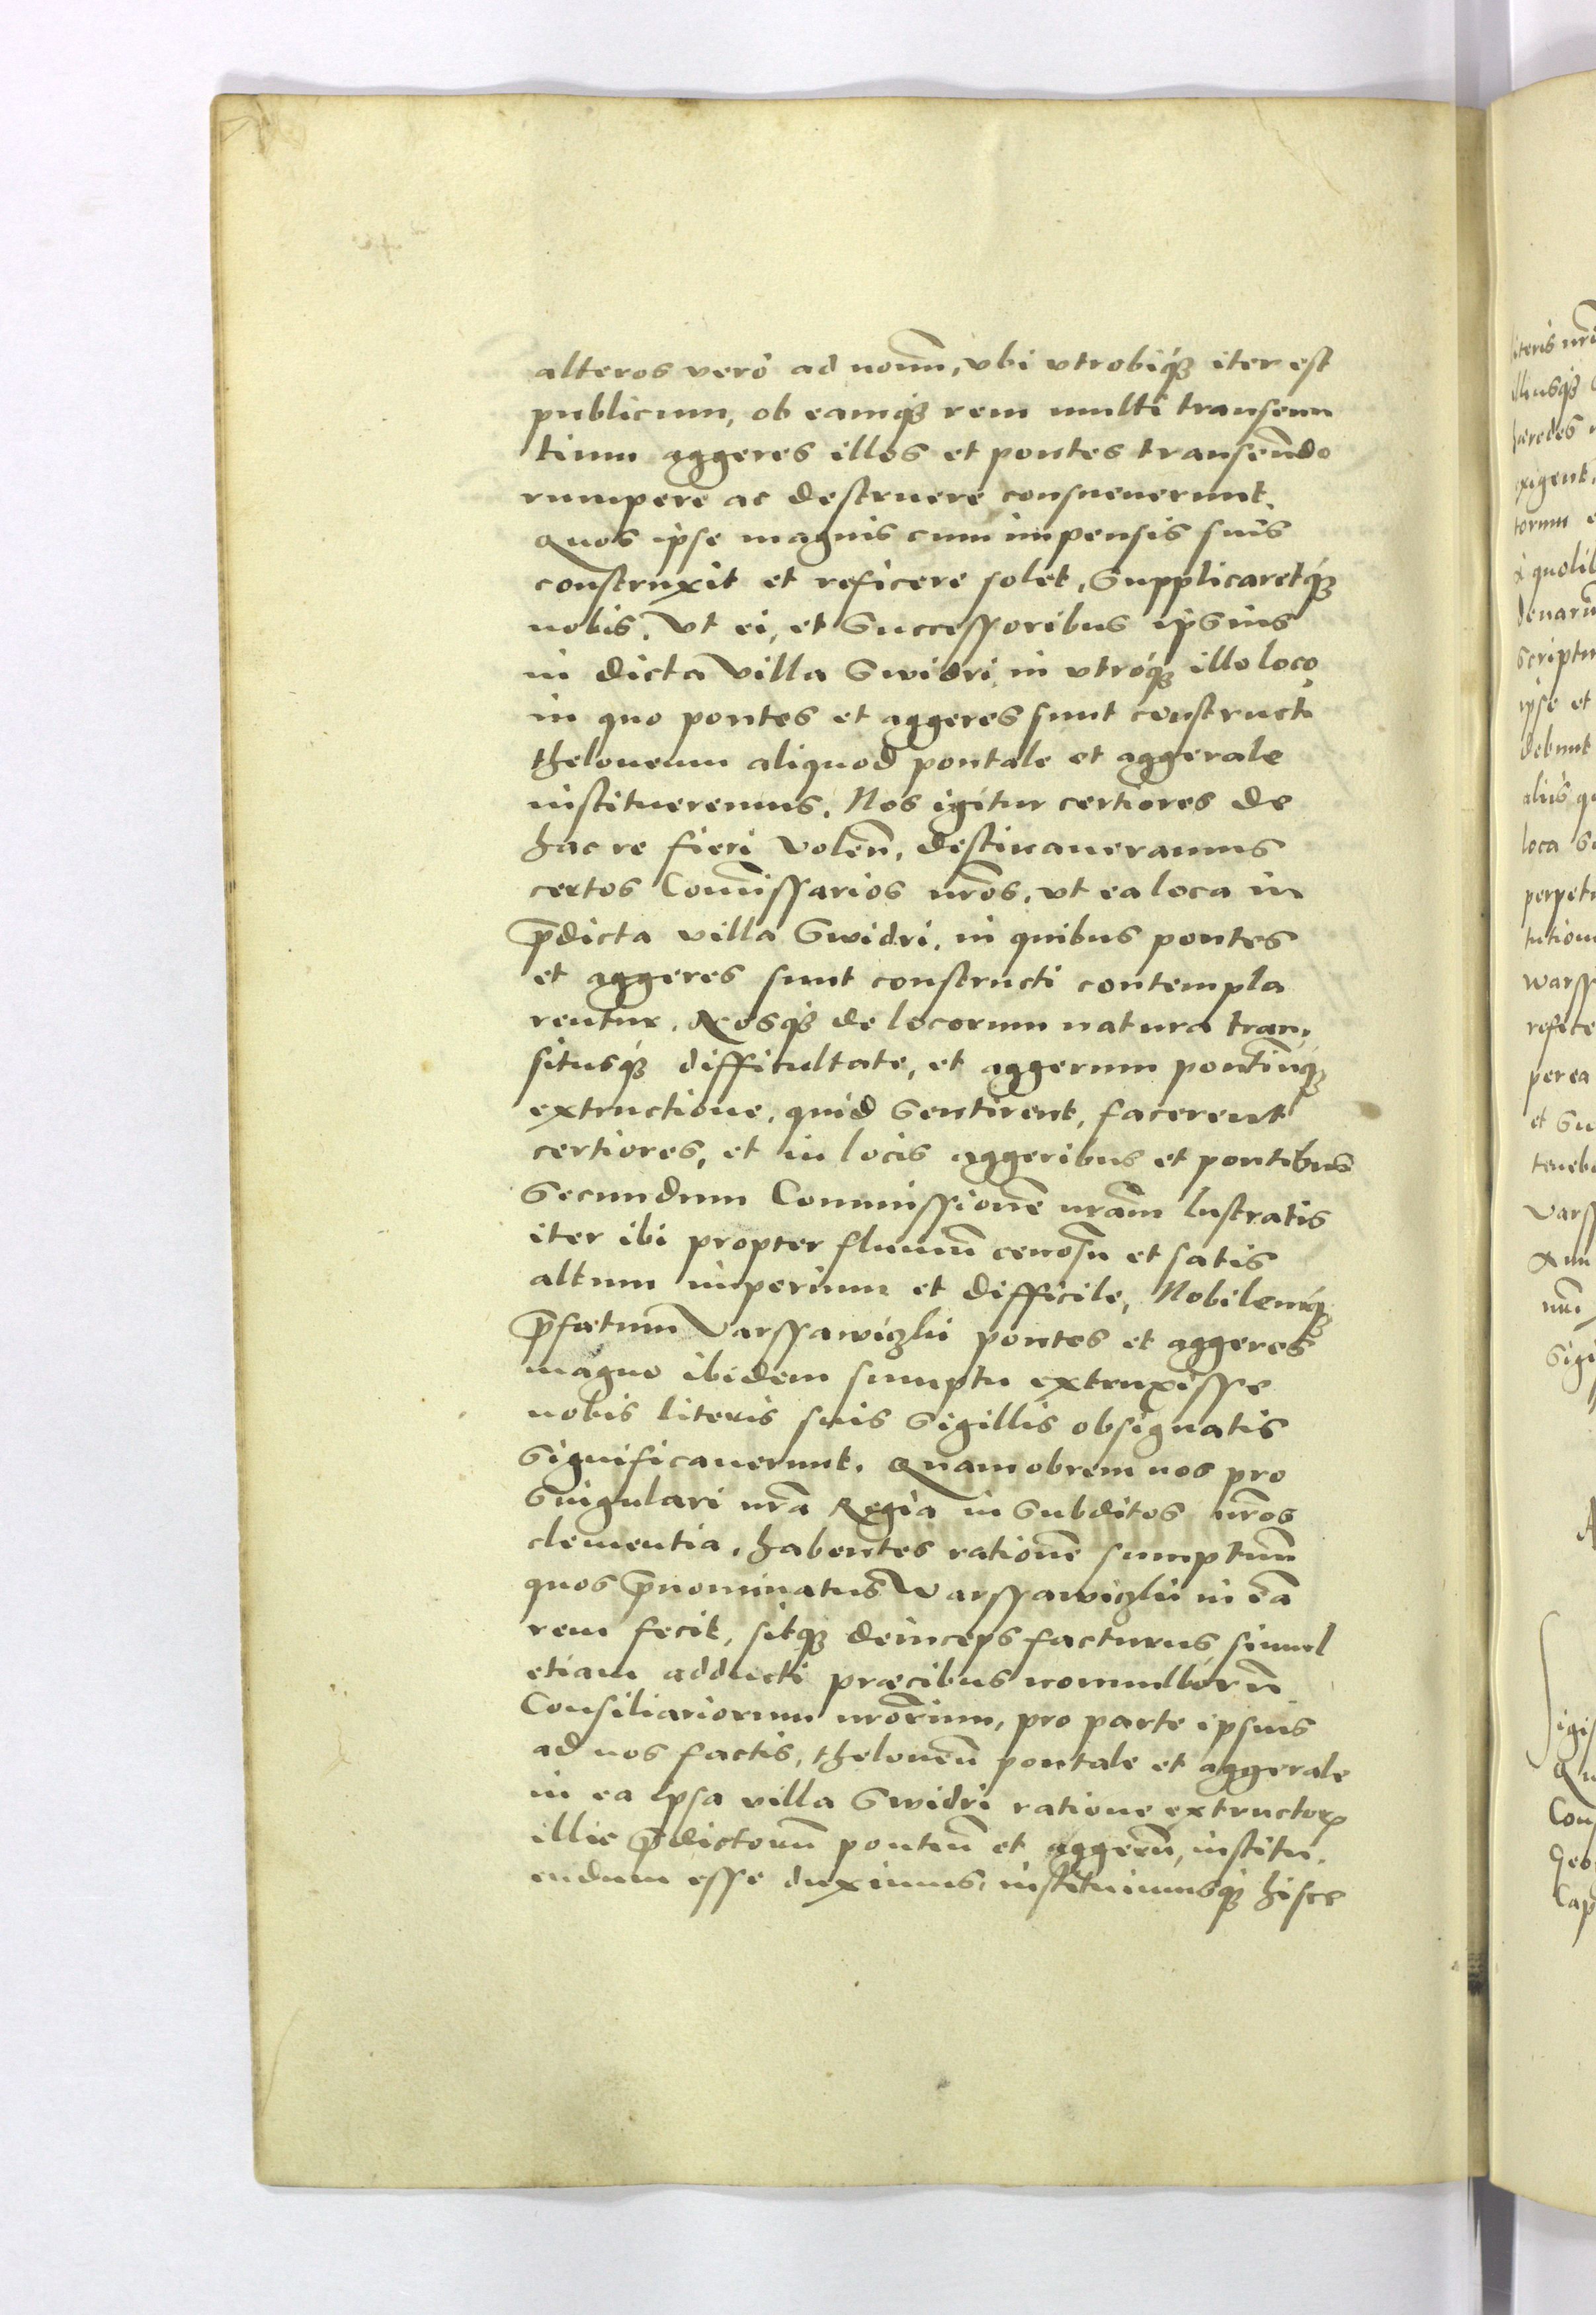 alteros vero ad nouũ, vbi vtrobiq́ꝫ iter est
publicum, ob eamq́ꝫ rem multi transeun
tium aggeres illos et pontes transeũdo
rumpere ac destruere consueuerunt.
Quos ipse magnis cum impensis suis
construxit et reficere solet, Supplicaretq́ꝫ
nobis. Vt ei, et Successoribus ipsius
in dicta Villa Swidri in vtroq́ꝫ illo loco
in quo pontes et aggeres sunt constructi
theloneum aliquod pontale et aggerale
institueremus. Nos igitur certiores de
hac re fieri volen̄, destinaueramus
certos Com̄issarios nr̄os, vt ea loca in
p̄dicta villa Swidri, in quibus pontes
et aggeres sunt constructi contempla
rentur. Nosq́ꝫ de locorum natura tran,
situsq́ꝫ difficultate, et aggerum pontiūq́ꝫ
extructione, quid Sentirent, facerent
certiores, et in locis aggeribus et pontibus
Secundum Commissionē nr̄am lustratis
iter ibi propter flumen̄ cenosū et satis
altum imperium et difficile, Nobilemq́ꝫ
p̄fatum Varssawiczki pontes et aggeres
magno ibidem sumptu extruxisse
nobis literis suis Sigillis obsignatis
Significauerunt. Quamobrem nos pro
Singulari nr̄a Regia in Subditos nr̄os
clementia, habentes rationē sumptuū
quos p̄nominatus Warssawiczki in eā
rem fecit, sitq́ꝫ deinceps facturus simul
etiam adducti præcibus nonnullorū
Consiliariorum nr̄orum, pro parte ipsius
ad nos factis, theloneū pontale et aggerale
in ea ipsa villa Swidri ratione extructoꝝ
illic p̄dictorū pontiū et aggerū, institu.
endum esse duximus, instituimusq́ꝫ hisce